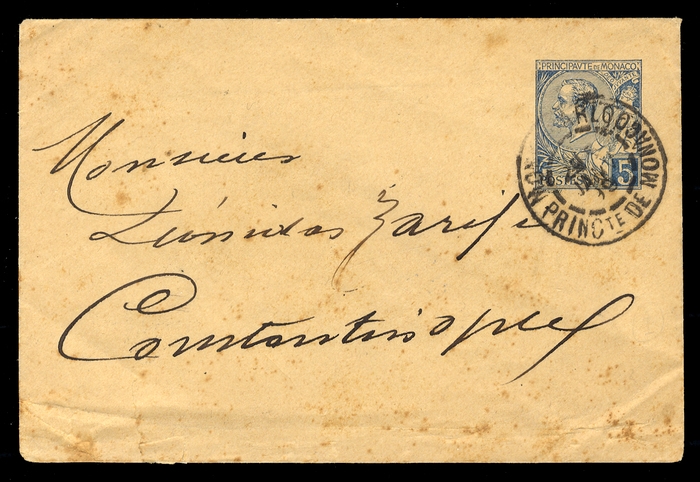 PRINCIPAVTE DE MONACO
5
PRINCTE DE MONACO
Monsieur
Léonidas Zarifi
Constantinople